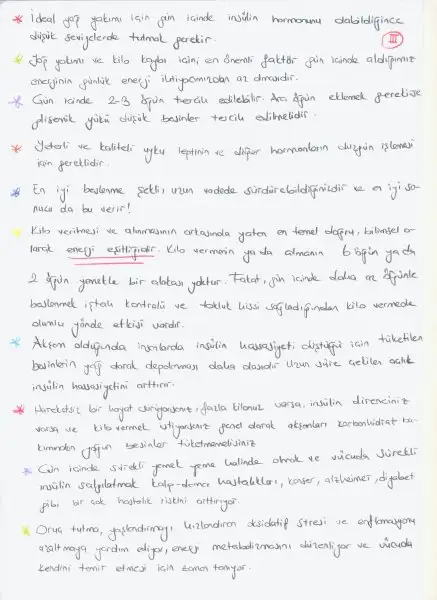 * İdeal yağ yakımı için gün içinde insülin hormonunu olabildiğince
düşük seviyelerde tutmak gerekir.
III
* Yağ yakımı ve kilo kaybı için, en önemli faktör gün içinde aldığımız
enerjinin günlük enerji ihtiyacımızdan az olmasıdır.
* Gün içinde 2-3 öğün tercih edilebilir. Ara öğün eklemek gerekirse
glisemik yükü düşük besinler tercih edilmelidir.
* Yeterli ve kaliteli uyku leptinin ve diğer hormonların düzgün işlemesi
için gereklidir.
* En iyi beslenme şekli, uzun vadede sürdürebildiğinizdir ve en iyi so-
nucu da bu verir!
* Kilo verilmesi ve alınmasının arkasında yatan en temel doğru, bilimsel o-
larak enerji eşitliğidir. Kilo vermenin ya da almanın 6 öğün ya da
2 öğün yemekle bir alakası yoktur. Fakat, gün içinde daha az öğünle
beslenmek iştah kontrolü ve tokluk hissi sağladığından kilo vermede
olumlu yönde etkisi vardır.
* Akşam olduğunda insanlarda insülin hassasiyeti düştüğü için tüketilen
besinlerin yağ olarak depolanması daha olasıdır. Uzun süre çekilen açlık
insülin hassasiyetini arttırır.
* Hareketsiz bir hayat sürüyorsanız, fazla kilonuz varsa, insülin direnciniz
varsa ve kilo vermek istiyorsanız genel olarak akşamları karbonhidrat ba-
kımından yoğun besinler tüketmemelisiniz.
* Gün içinde sürekli yemek yeme halinde olmak ve vücuda sürekli
insülin salgılatmak kalp-damar hastalıkları, kanser, alzheimer, diyabet
gibi bir çok hastalık riskini arttırıyor.
* Oruç tutma, yaşlandırmayı hızlandıran oksidatif stresi ve enflamasyonu
azaltmaya yardım ediyor, enerji metabolizmasını düzenliyor ve vücuda
kendini tamir etmesi için zaman tanıyor.